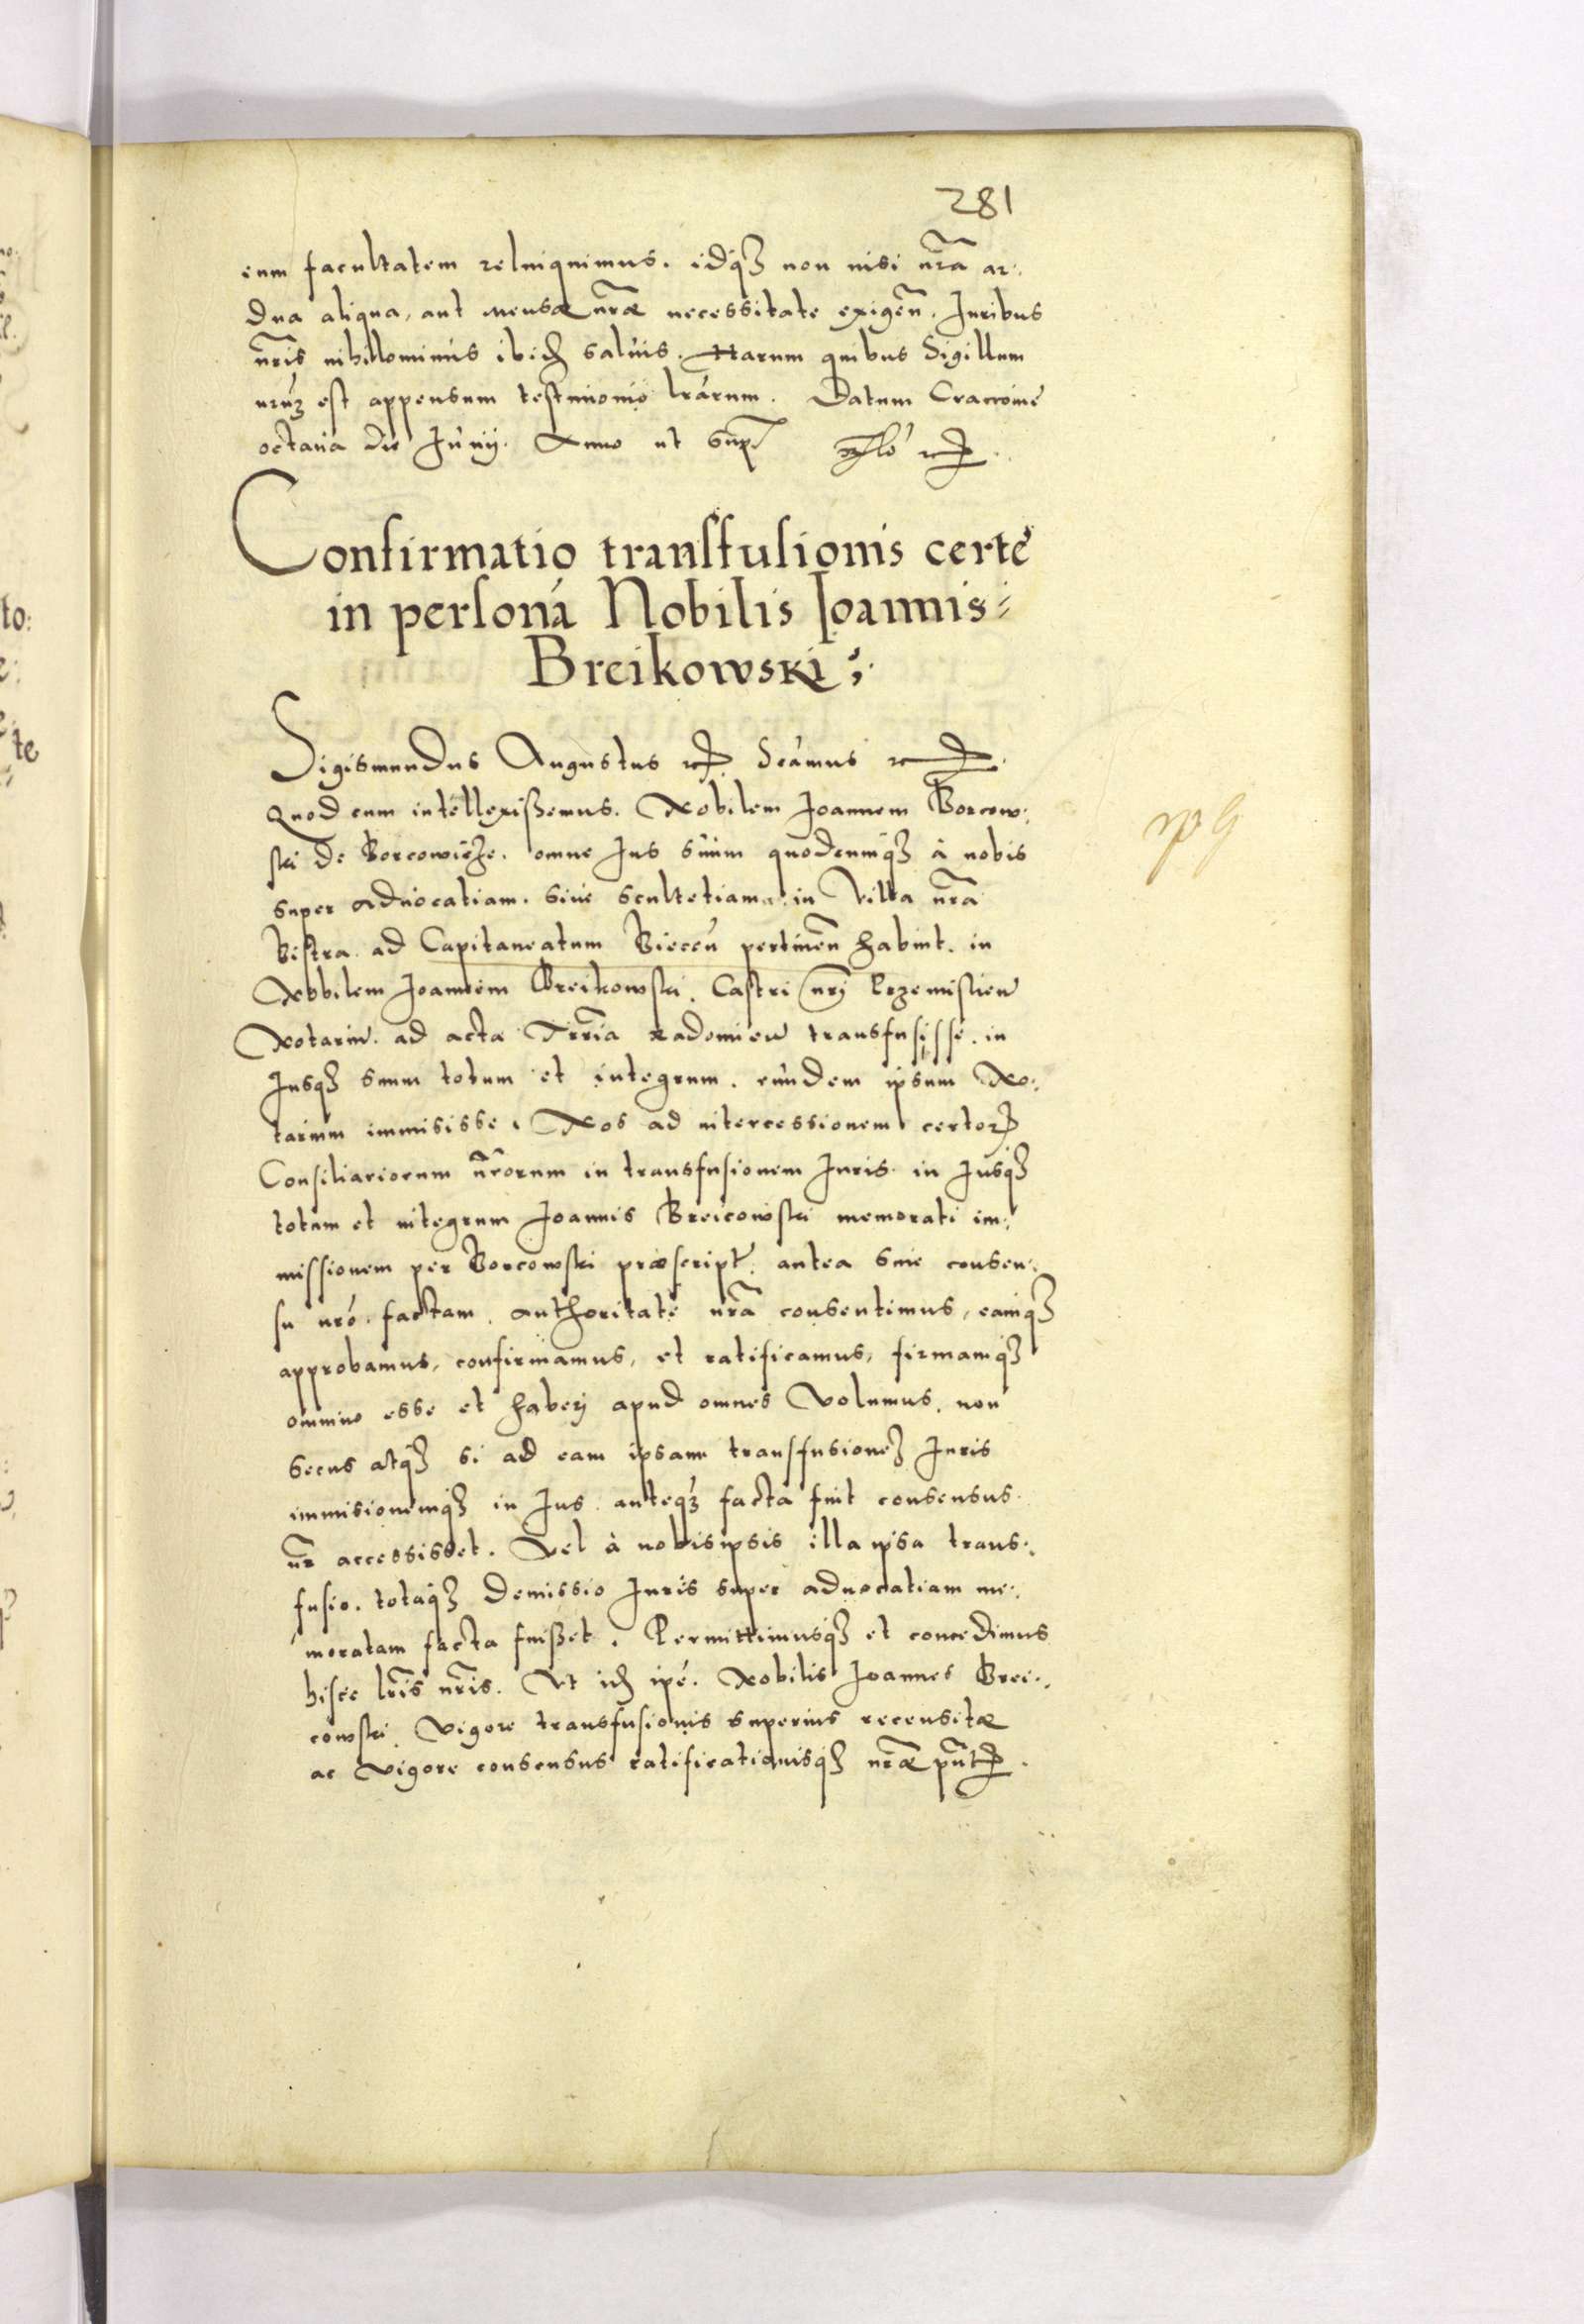 281
eum facultatem relinquimus. idq₃ non nisi nr̃a ar:
dua aliqua, aut mensæ nr̃æ necessitate exigeñ. Iuribus
nr̃is nihillominus ibid. saluis. Harum quibus Sigillum
nrũ₃ est appensum testimonio lrárum. Datum Cracouiæ
octaua die Iunij. Anno ut supr
Confirmatio transfusionis certe
in personá Nobilis Ioannis
Breikowski
Sigismundus Augustus etc. Scámus etc.
Quod cum intellexißemus. Nobilem Ioannem Borcow:
ski de Borcowicze. omne Ius suum quodcumq₃ à nobis
super aduocatiam. siue scultetiam in Villa nr̃a
Bistra ad Capitaneatum Bieceń pertineñ habuit. in
Nobilem Ioannem Breikowski. Castri nrj Przemislien
Notariũ. ad acta Trr̃ia Radomień transfusisse. in
Iusq₃ suum totum et integrum. eundem ipsum No:
tarium immisisse. Nos ad intercessionem certor
Consiliariorum nr̃orum in transfusionem Iuris in Iusq₃
totum et integrum Ioannis Breicowski memorati im:
missionem per Borcowski præscript. antea sine consen:
su nró factam. authoritate nr̃a consentimus, eamq₃
approbamus, confirmamus, et ratificamus, firmamq₃
omnino esse et haberj apud omnes Volumus. non
secus atq₃ si ad eam ipsam transfusione₃ Iuris
immisionemq₃ in Ius anteq₃ facta fuit consensus
nr̃ accessisset. Vel à nobisipsis illa ipsa trans:
fusio. totaq₃ demissio Iuris super aduocatiam me:
moratam facta fuißet. Permittimusq₃ et concedimus
hisce lr̃is nr̃is. Vt id. ipé. Nobilis Ioannes Brei:
cowski. Vigore transfusionis superius recensitæ
ac Vigore consensus ratificationisq₃ nr̃æ pñt